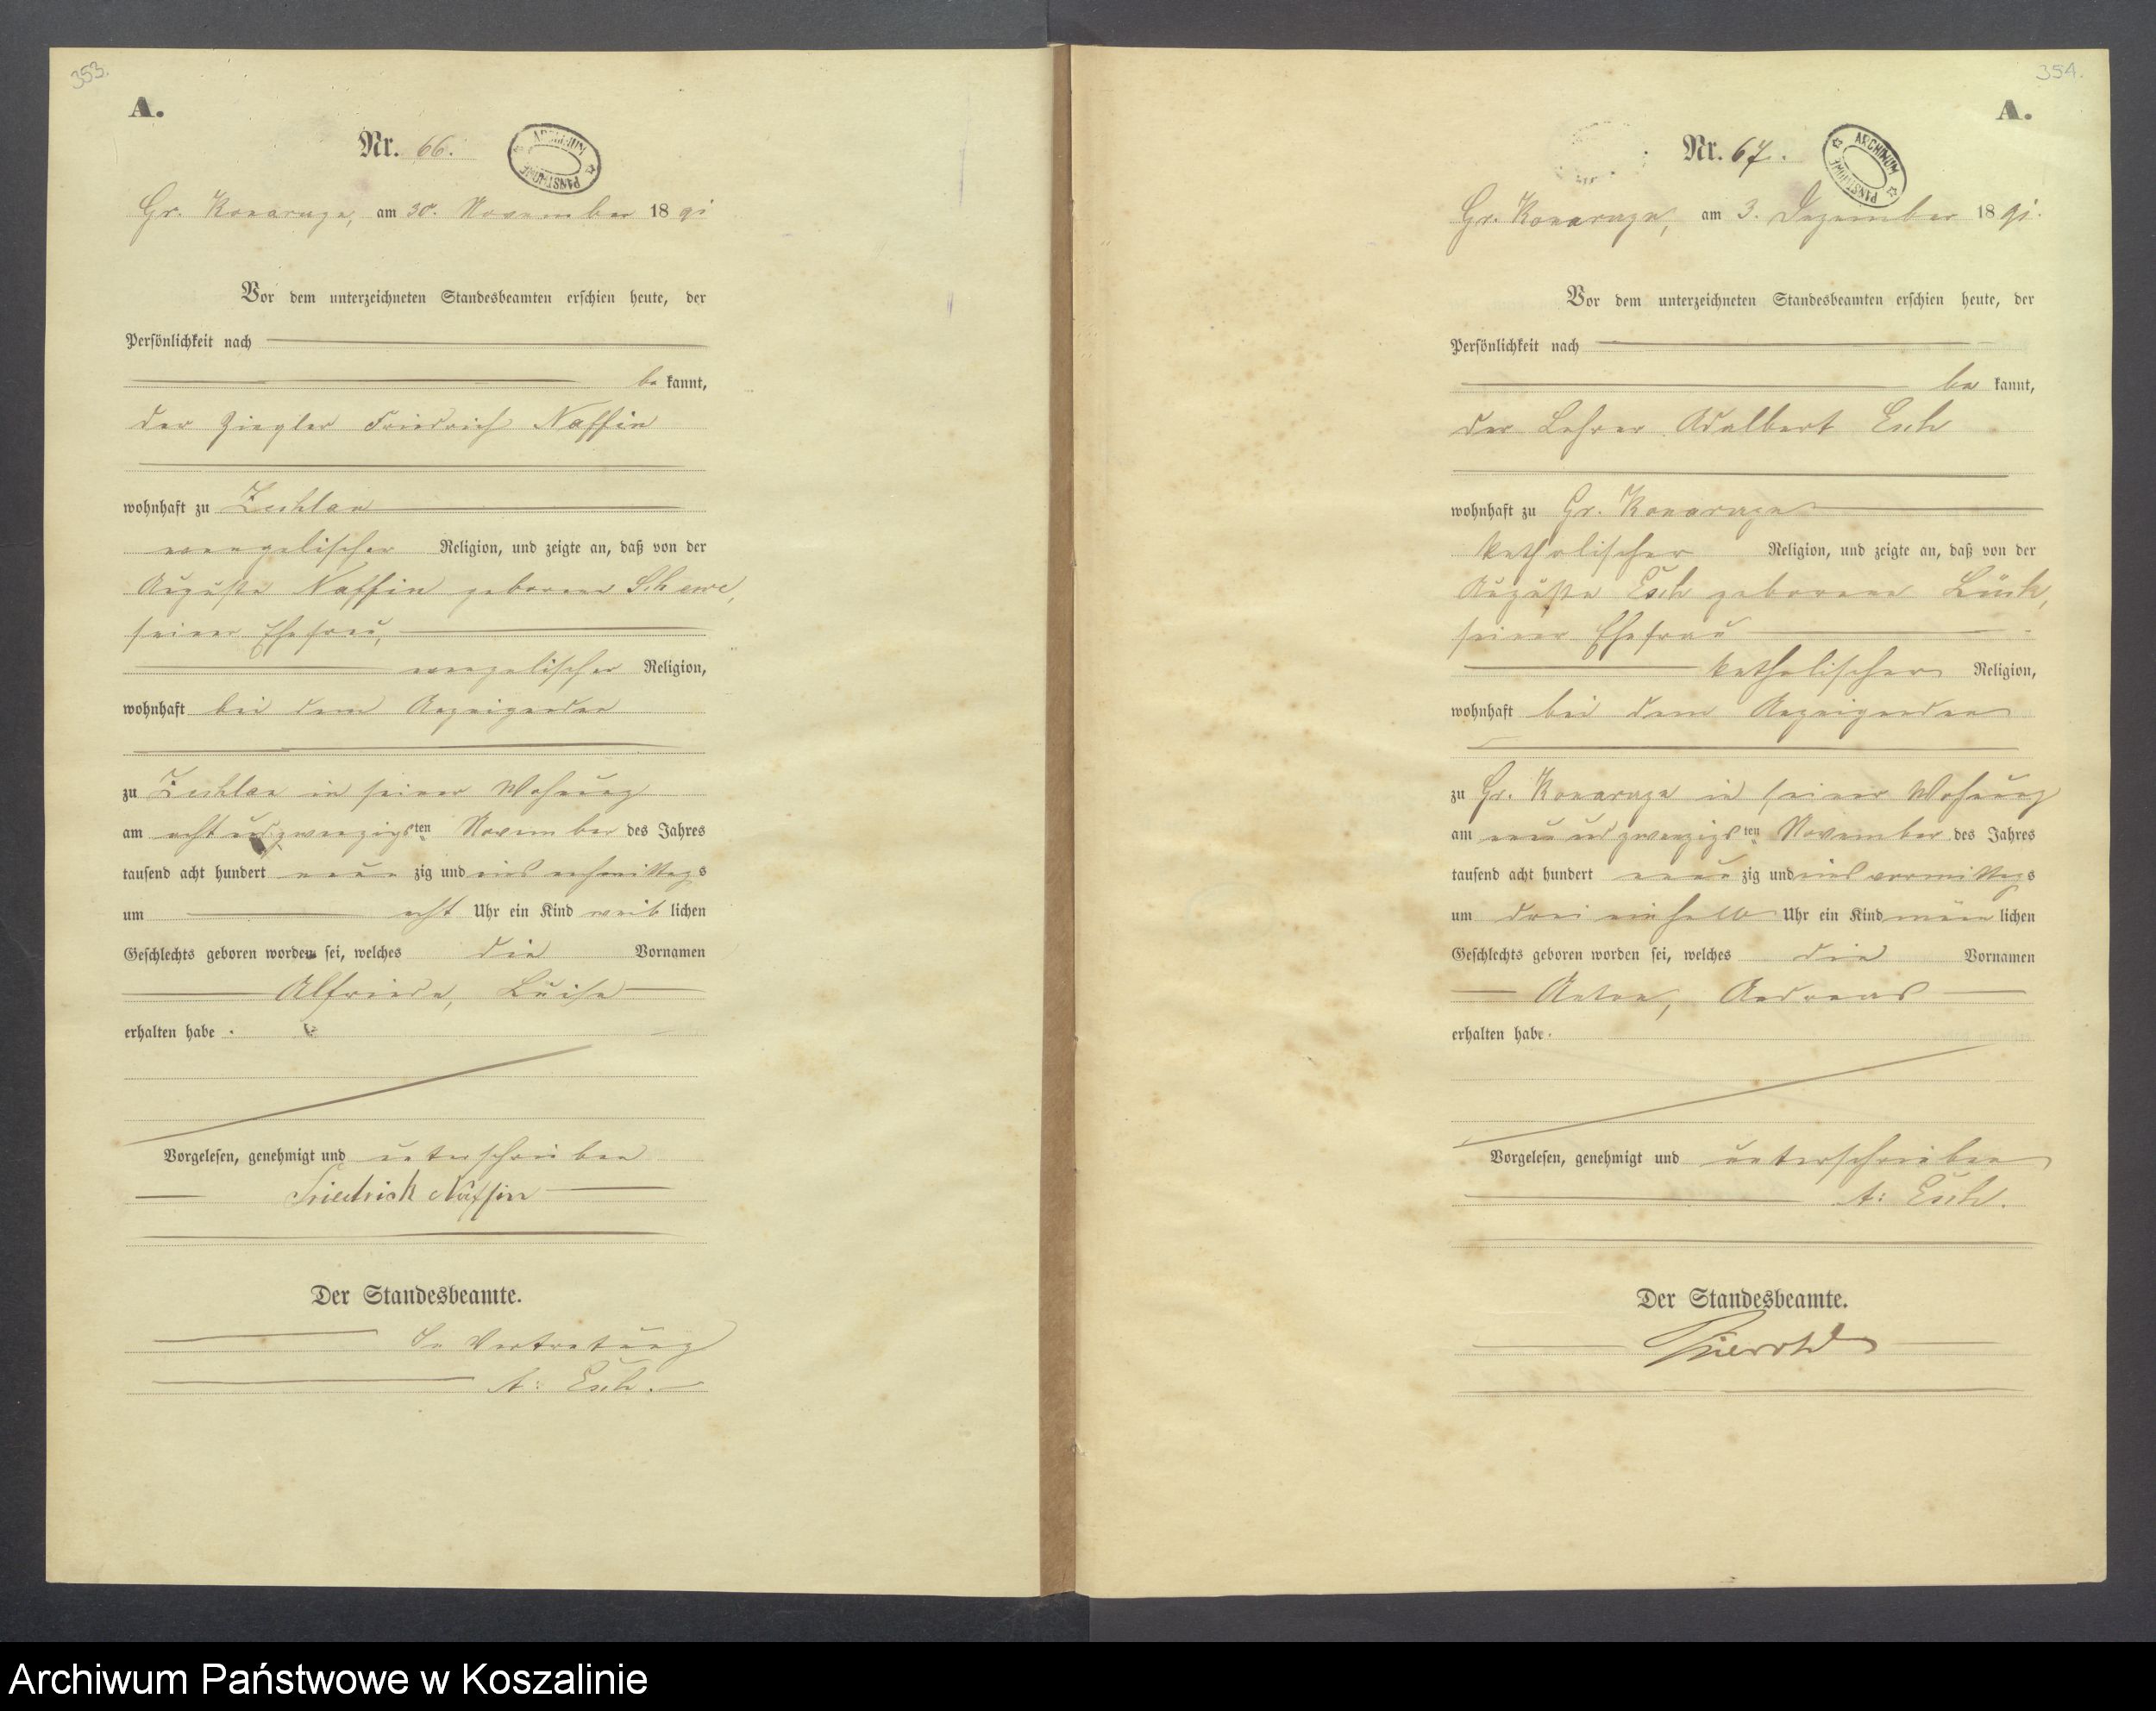 353.
A.
Nr. 66.
ARCHIWUM PAŃSTWOWE
Gr. Konarzyn, am 30. November 1891
Vor dem unterzeichneten Standesbeamten erschien heute, der
Persönlichkeit nach
be kannt,
der Ziegler Friedrich Naffin
wohnhaft zu Zechlau
evangelischer Religion, und zeigte an, daß von der
Auguste Naffin geborene Schewe,
seiner Ehefrau,
evangelischer Religion,
wohnhaft bei dem Anzeigenden
zu Zechlau in seiner Wohnung
am acht und zwanzigsten November des Jahres
tausend acht hundert neun zig und eins nachmittags
um acht Uhr ein Kind weib lichen
Geschlechts geboren worden sei, welches die Vornamen
Alfriede, Luise
erhalten habe.
Vorgelesen, genehmigt und unterschrieben
Friedrich Naffin
Der Standesbeamte.
In Vertretung
A. Esch.
354.
A.
Nr. 67.
ARCHIWUM PAŃSTWOWE
Gr. Konarzyn, am 3. Dezember 1891.
Vor dem unterzeichneten Standesbeamten erschien heute, der
Persönlichkeit nach
be kannt,
der Lehrer Adalbert Esch
wohnhaft zu Gr. Konarzyn
katholischer Religion, und zeigte an, daß von der
Auguste Esch geborene Lück,
seiner Ehefrau
katholischer Religion,
wohnhaft bei dem Anzeigenden
zu Gr. Konarzyn in seiner Wohnung
am neun und zwanzigsten November des Jahres
tausend acht hundert neun zig und eins vormittags
um drei ein halb Uhr ein Kind männ lichen
Geschlechts geboren worden sei, welches die Vornamen
Anton, Andreas
erhalten habe.
Vorgelesen, genehmigt und unterschrieben
A. Esch.
Der Standesbeamte.
Archiwum Państwowe w Koszalinie